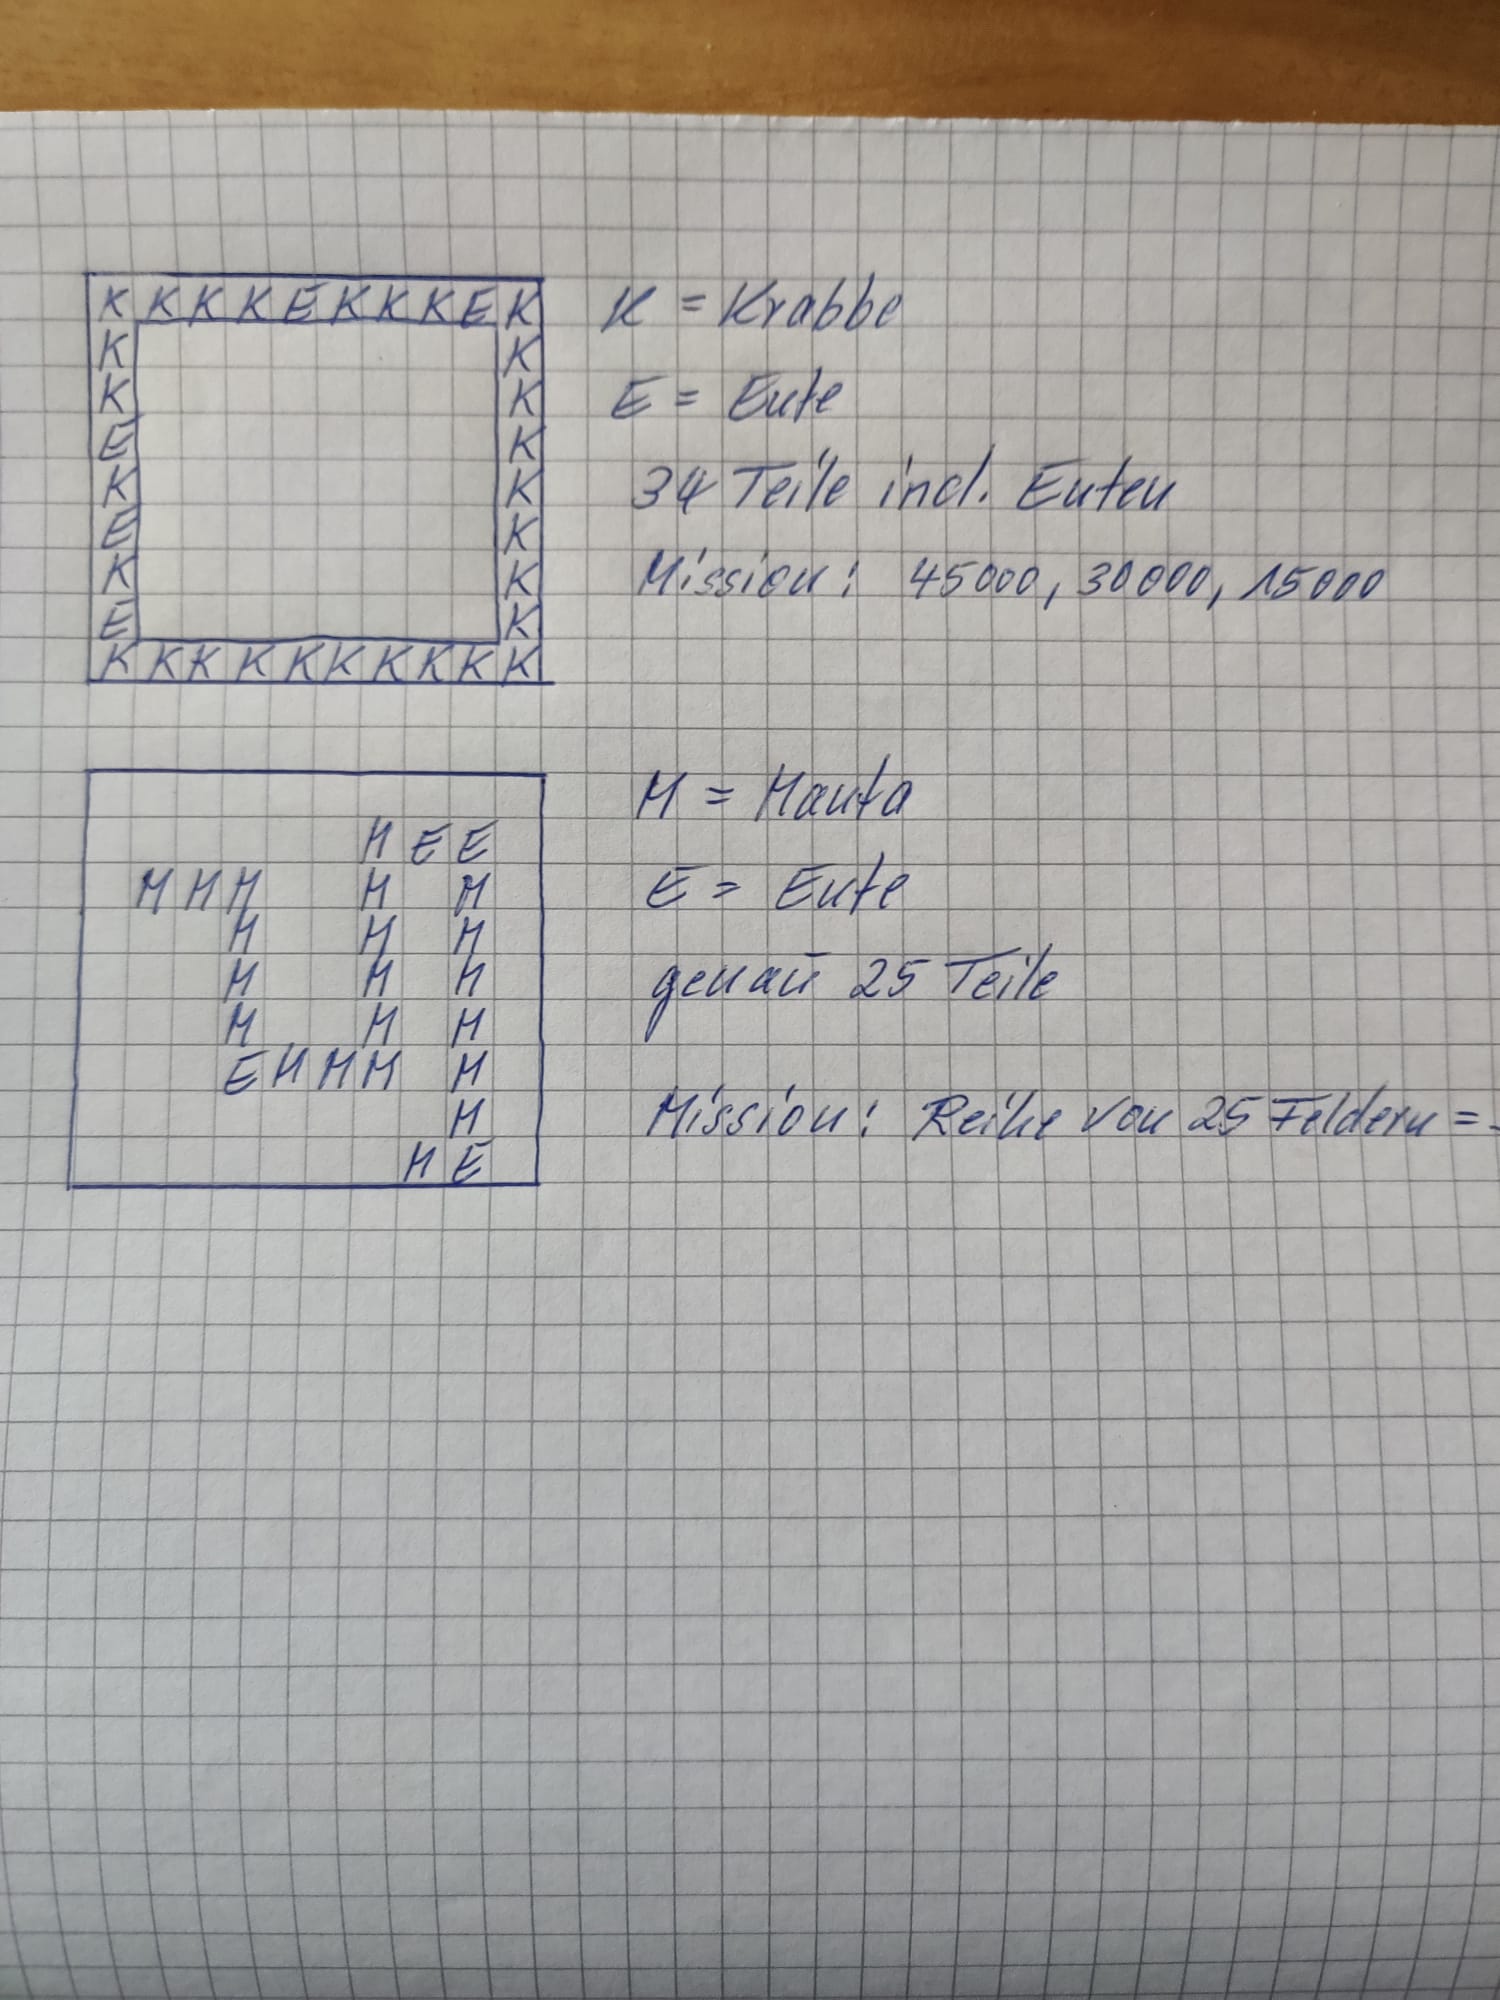 K K K K E K K K E K
K K
K K
E K
K K
E K
K K
E K
K K K K K K K K K K
K = Krabbe
E = Ente
34 Teile incl. Enten
Mission: 45000, 30000, 15000
M E E
M M M M M
M M M
M M M
M M M
E M M M M
M
M E
M = Manta
E = Ente
genau 25 Teile
Mission: Reihe von 25 Feldern =